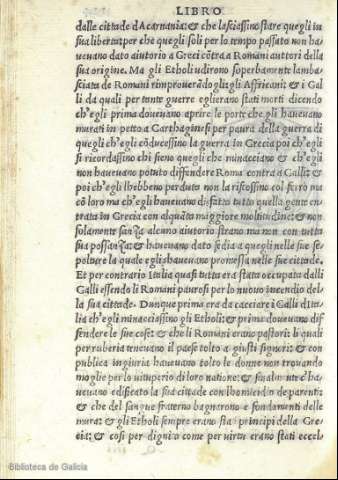 LIBRO
dalle cittade d'Acarnania: & che lasciassino stare quegli in
sua liberta: per che quegli soli per lo tempo passato non ha-
uevano dato aiutorio a Greci cōtra a Romani auttori della
sua origine. Ma gli Etholi udirono superbamente lamba-
sciata de Romani rimprouerādo gli gli Affricani: & i Gal
li da quali per tante guerre eglierano stati morti dicendo
ch'egli prima doueuano aprire le porte che gli haueuano
murati in petto a Carthaginesi per paura della guerra di
quegli ch'egli cōducessino la guerra in Grecia poi ch'egli
si ricordassino chi sieno quegli che minacciano & ch'egli
non haueuano potuto diffendere Roma contra a Galli: &
poi ch'egli lhebbeno perduto non la riscossino col ferro ma
cō loro ma ch'egli haueuano disfatto tutto quella gente en
trata in Grecia con alquāto maggiore moltitudine: & non
solamente sanza alcuno aiutorio strano ma non con tutta
sua possanza: & haueuano dato sedia a quegli nelle sue se-
polture la quale egli haueuano promessa nelle sue cittade.
Et per contrario Italia quasi tutta era stata occupata dalli
Galli essendo li Romani paurosi per lo nuouo incendio del
la sua cittade. Dunque prima era da cacciare i Galli d'Ita
lia ch'egli minacciassino gli Etholi: & prima doueuano dif
fendere le sue cose: & che li Romani erano pastori: li quali
per ruberia teneuano il paese tolto a giusti signori: & con
publica ingiuria haueuano tolto le donne non trouando
moglie per lo uituperio di loro natione: & finalmēte c'ha-
ueuano edificata la sua cittade con l'homicidio de parenti:
& che del sangue fraterno bagnarono e fondamenti delle
mura: & gli Etholi sempre erano stati principi della Gre-
cia: & cosi per dignita come per uirtu erano stati eccel-
Biblioteca de Galicia